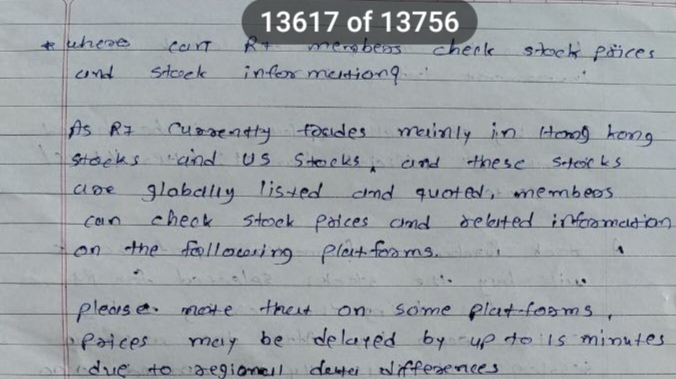 13617 of 13756
* where can R7 members check stock prices
and stock information?
As R7 currently trades mainly in Hong kong
stocks and US stocks, and these stocks
are globally listed and quoted, members
can check stock prices and related information
on the following platforms.
please note that on some platforms,
prices may be delayed by up to 15 minutes
due to regional data differences